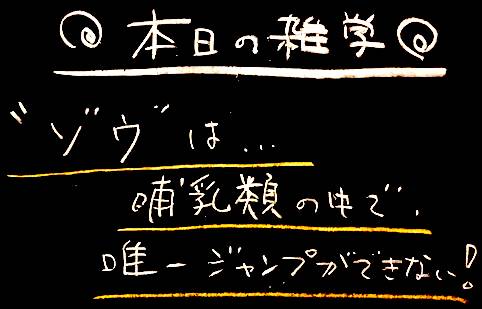 本日の雑学
"ゾウ"は...
哺乳類の中で、
唯一ジャンプができない!